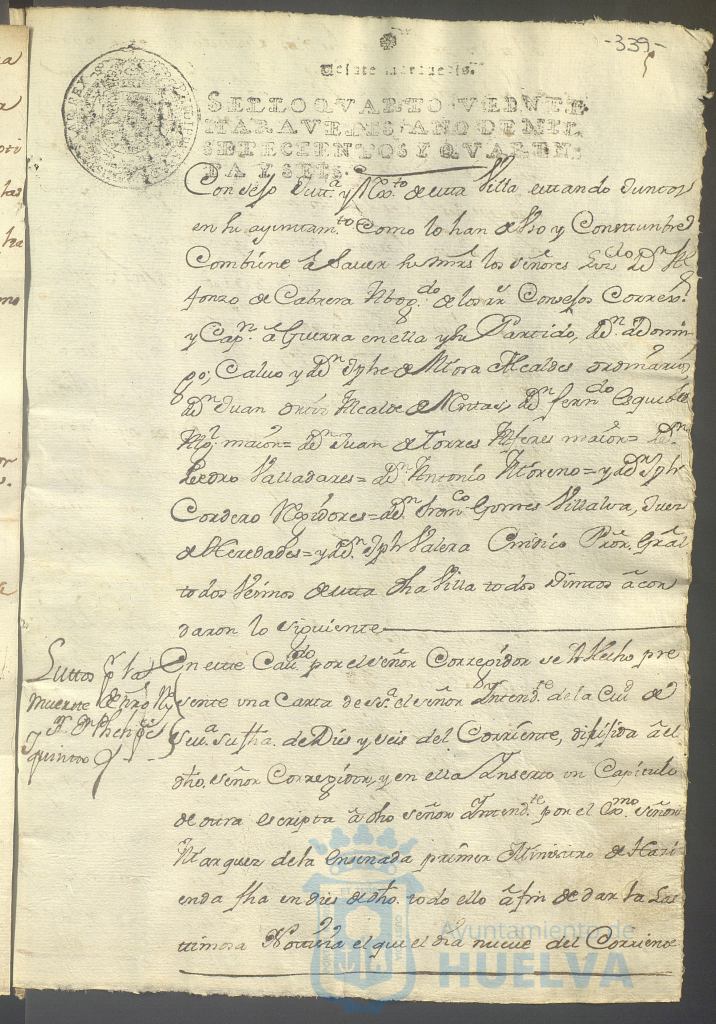 -339-
Veinte maravedis.
SELLO QVARTO, VEINTE
MARAVEDIS, AÑO DE MIL
SETECIENTOS Y QVAREN-
TA Y SEIS.
Consejo Justt.ª y Rex.to de esta Villa estando Juntos
en su ayuntam.to como lo han de Vso y Constumbre
Combiene â Sauer sus mrds los señores Lizdo Dn. Al
fonzo de Cabrera Abog.do de los rs Consejos Correx.r
y Capn. â Guerra en ella y su Partido, dn. Domin
go, Caluo y dn Jphe de Mora Alcaldes ordinarios
dn Juan Alcalde de Mestas, dn ferndo Esquibel
Alg.l maior= dn Juan de Torres Alferes maior= Dn.
Pedro Valladares= dn. Antonio Moreno= y dn Jph
Cordero Rexidores= dn. Franco Gomes Villalva, Juez
de Heredades= y dn. Jph Valera Sindico Pror. Gral
todos Vezinos de esta dha Villa todos Juntos âcor
daron lo siguiente
En este Cauldo por el señor Correxidor se â Hecho pre
sente vna Carta de el señor Intendte de la Ciud de
Seuª su fha. de Dies y seis del Corriente, dirijida â el
dho. señor Correxidor, y en ella Inserto vn Capitulo
de otra escripta â dho señor Intendte por el Exmo señor
Marquez de la ensenada primer Ministro de Hazi
enda fha en dies de dho. todo ello â fin de dar la Las
timosa Notizia el que el dia nueue del Corriente
Luttos pr la
muerte de nro Rey
Dn Phelipe
quinto
Ayuntamiento de
HUELVA